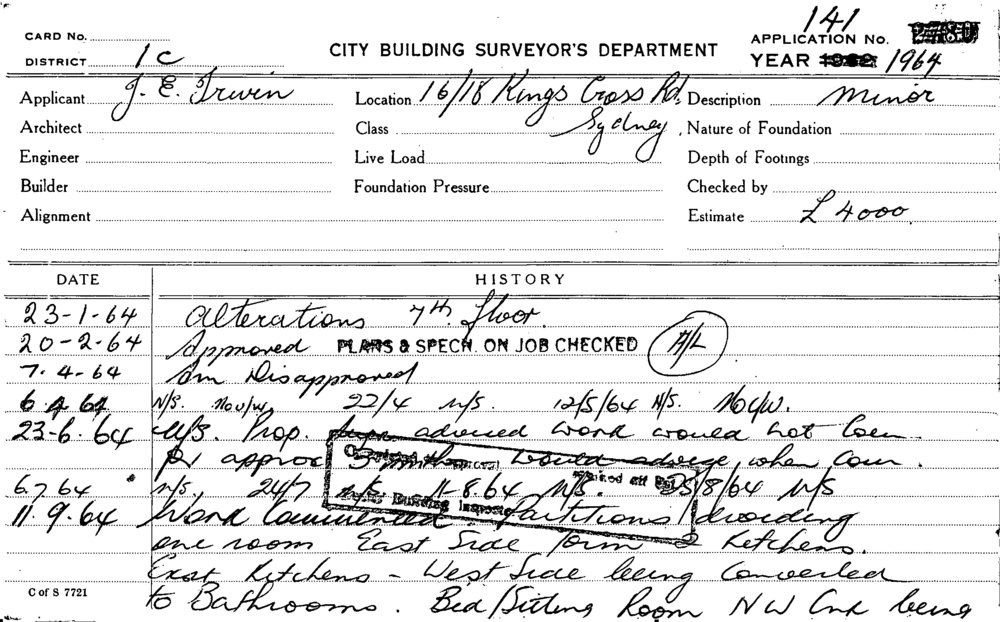 CARD No.
DISTRICT 1C
CITY BUILDING SURVEYOR'S DEPARTMENT
141
APPLICATION No.
YEAR 1962 1964
Applicant J. E. Irwin
Location 16/18 Kings Cross Rd. Sydney
Description Minor
Architect
Class
Nature of Foundation
Engineer
Live Load
Depth of Footings
Builder
Foundation Pressure
Checked by
Alignment
Estimate £ 4000.
DATE HISTORY
23-1-64 Alterations 7th floor.
20-2-64 Approved PLANS & SPECN. ON JOB CHECKED A/L
7.4-64 Am Disapproved
6.4.64 N/S. No v/w. 22/4 N/S. 12/5/64 N/S. No v/w.
23-6.64 N/S. Prop. advised work would not Com
for approx 3 months would advise when Com.
6.7.64 N/S, 24/7 N/S 11-8.64 N/S. 25/8/64 N/S
11.9.64 Work Commenced. Partitions dividing
one room East Side form 2 Kitchens.
Exist Kitchens - West Side being Converted
C of S 7721
to Bathrooms. Bed/Sitting Room NW Cnr being
Building Inspector